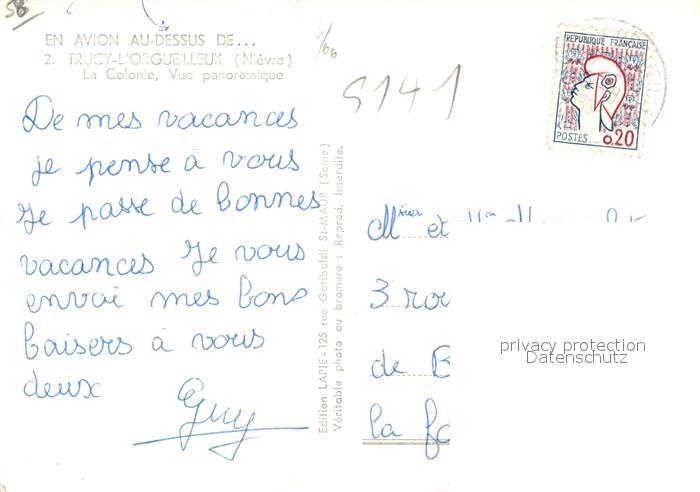 58
EN AVION AU-DESSUS DE...
2. TRUCY-L'ORGUEILLEUX (Nièvre)
La Colonie, Vue panoramique
5141
De mes vacances
je pense à vous
Je passe de bonnes
vacances Je vous
envoi mes bons
baisers à vous
deux
Guy
Edition LAPIE - 125 rue Garibaldi St-MAUR (Seine)
Véritable photo au bromure : Reprod. interdite.
REPUBLIQUE FRANÇAISE
POSTES 0,20
et
3
de B
la
privacy protection
Datenschutz